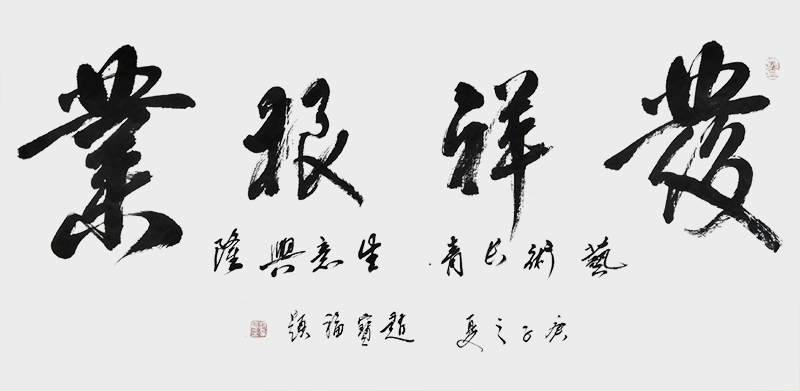 發祥根業
藝術長青 生意興隆
庚子之夏 趙寶福題